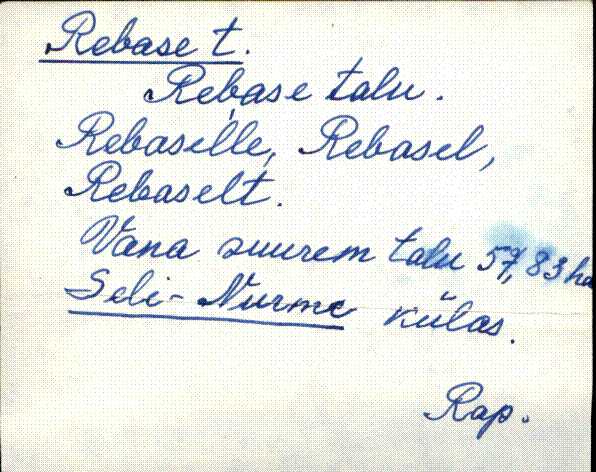 Rebase t.
Rebase talu.
Rebaselle, Rebasel,
Rebaselt.
Vana suurem talu 57,83 ha
Seli-Nurme külas.
Rap.